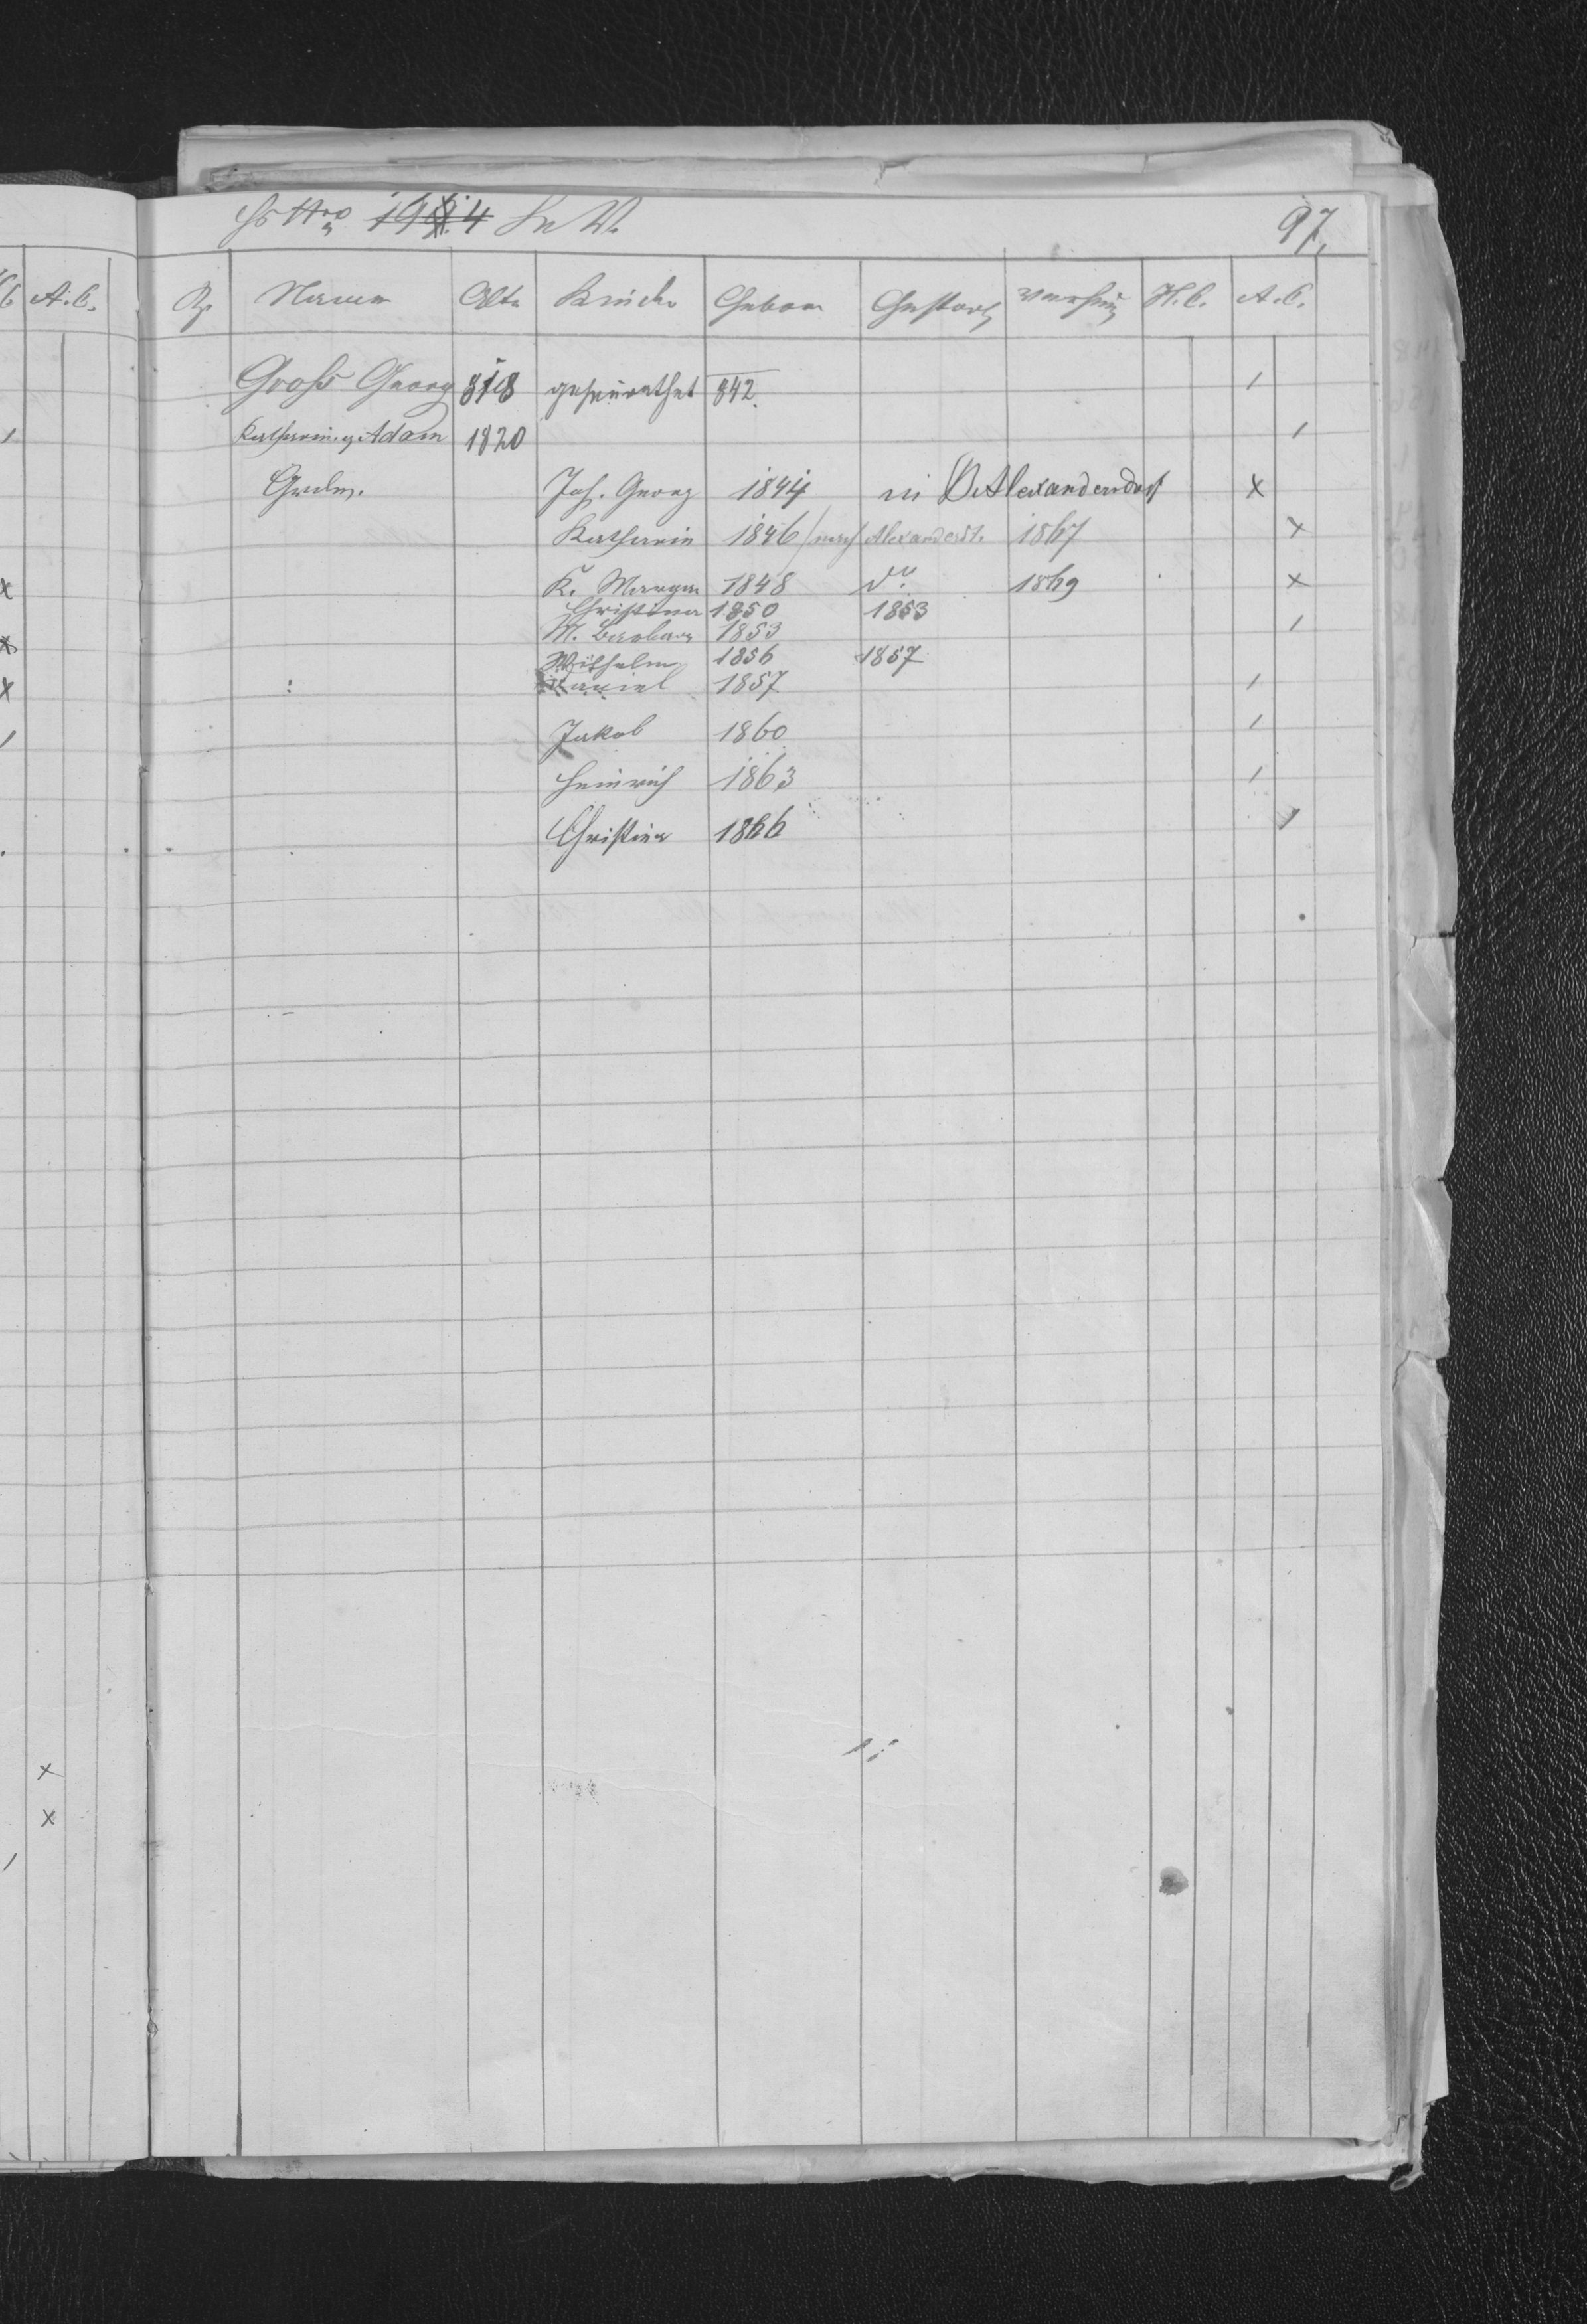 Hs Nro 194 97.
A. C.
Namen Alter Kinder Geboren Gestorb H. C. A. C.
Groß Georg 818 geheirathet 842.
Katharin. g. Adam 1820
Joh. Georg 1844 in Alexanderdorf x
Katharin 1846 nach Alexandersd. 1867 x
K. Margar 1848 do. 1869 x
Christina 1850 1853
M. Barbara 1853
Wilhelm 1856 1857
Daniel 1857
Jakob 1860
Heinrich 1863
Christina 1866